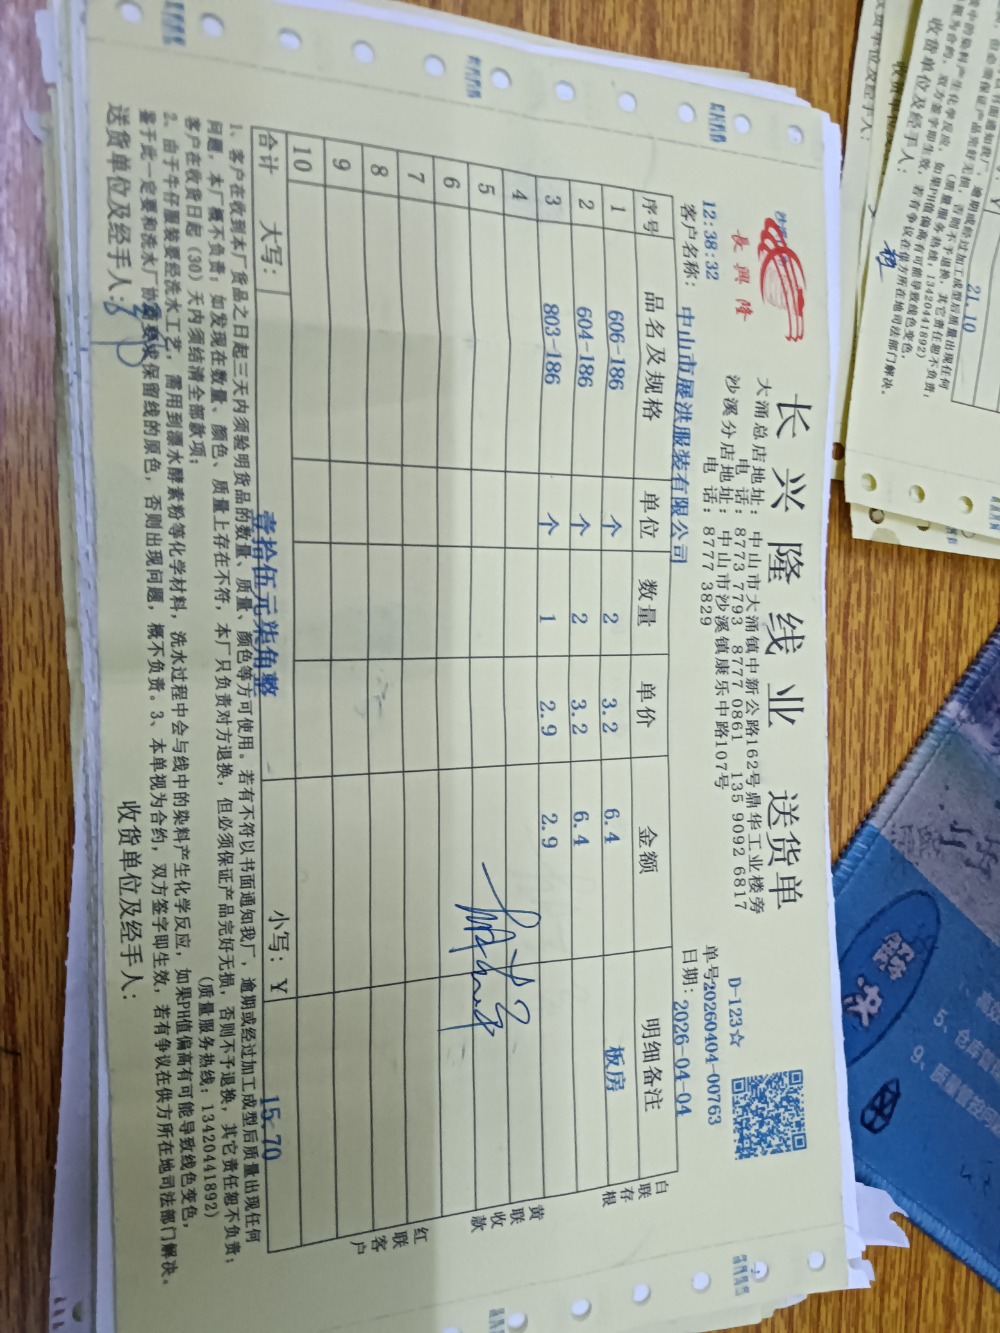 長興隆
长兴隆线业 送货单
大涌总店地址：中山市大涌镇中新公路162号鼎华工业楼旁
电 话：8773 7793 8777 0861 135 9092 6817
沙溪分店地址：中山市沙溪镇康乐中路107号
电 话：8777 3829
D-123☆
单号20260404-00763
12:38:32
客户名称：中山市展洪服装有限公司
日期：2026-04-04
序号 品名及规格 单位 数量 单价 金额 明细备注
1 606-186 个 2 3.2 6.4 板房
2 604-186 个 2 3.2 6.4
3 803-186 个 1 2.9 2.9
4
5
6
7
8
9
10
合计 大写：壹拾伍元柒角整 小写：¥ 15.70
白联存根
黄联收款
红联客户
1、客户在收到本厂货品之日起三天内须验明货品的数量、质量、颜色等方可使用。若有不符以书面通知我厂，逾期或经过加工成型后质量出现任何
问题，本厂概不负责；如发现在数量、颜色、质量上存在不符，本厂只负责对方退换，但必须保证产品完好无损，否则不予退换，其它责任恕不负责；
客户在收货日起（30）天内须结清全部款项； （质量服务热线：13420441892）
2、由于牛仔服装要经洗水工艺，需用到漂水酵素粉等化学材料，洗水过程中会与线中的染料产生化学反应，如果PH值偏高有可能导致线色变色，
鉴于此一定要和洗水厂协商要求保留线的原色，否则出现问题，概不负责。3、本单视为合约，双方签字即生效，若有争议在供方所在地司法部门解决。
送货单位及经手人：
收货单位及经手人：
21.10
收货单位及经手人：
解决
5、仓库管
9、质量管控